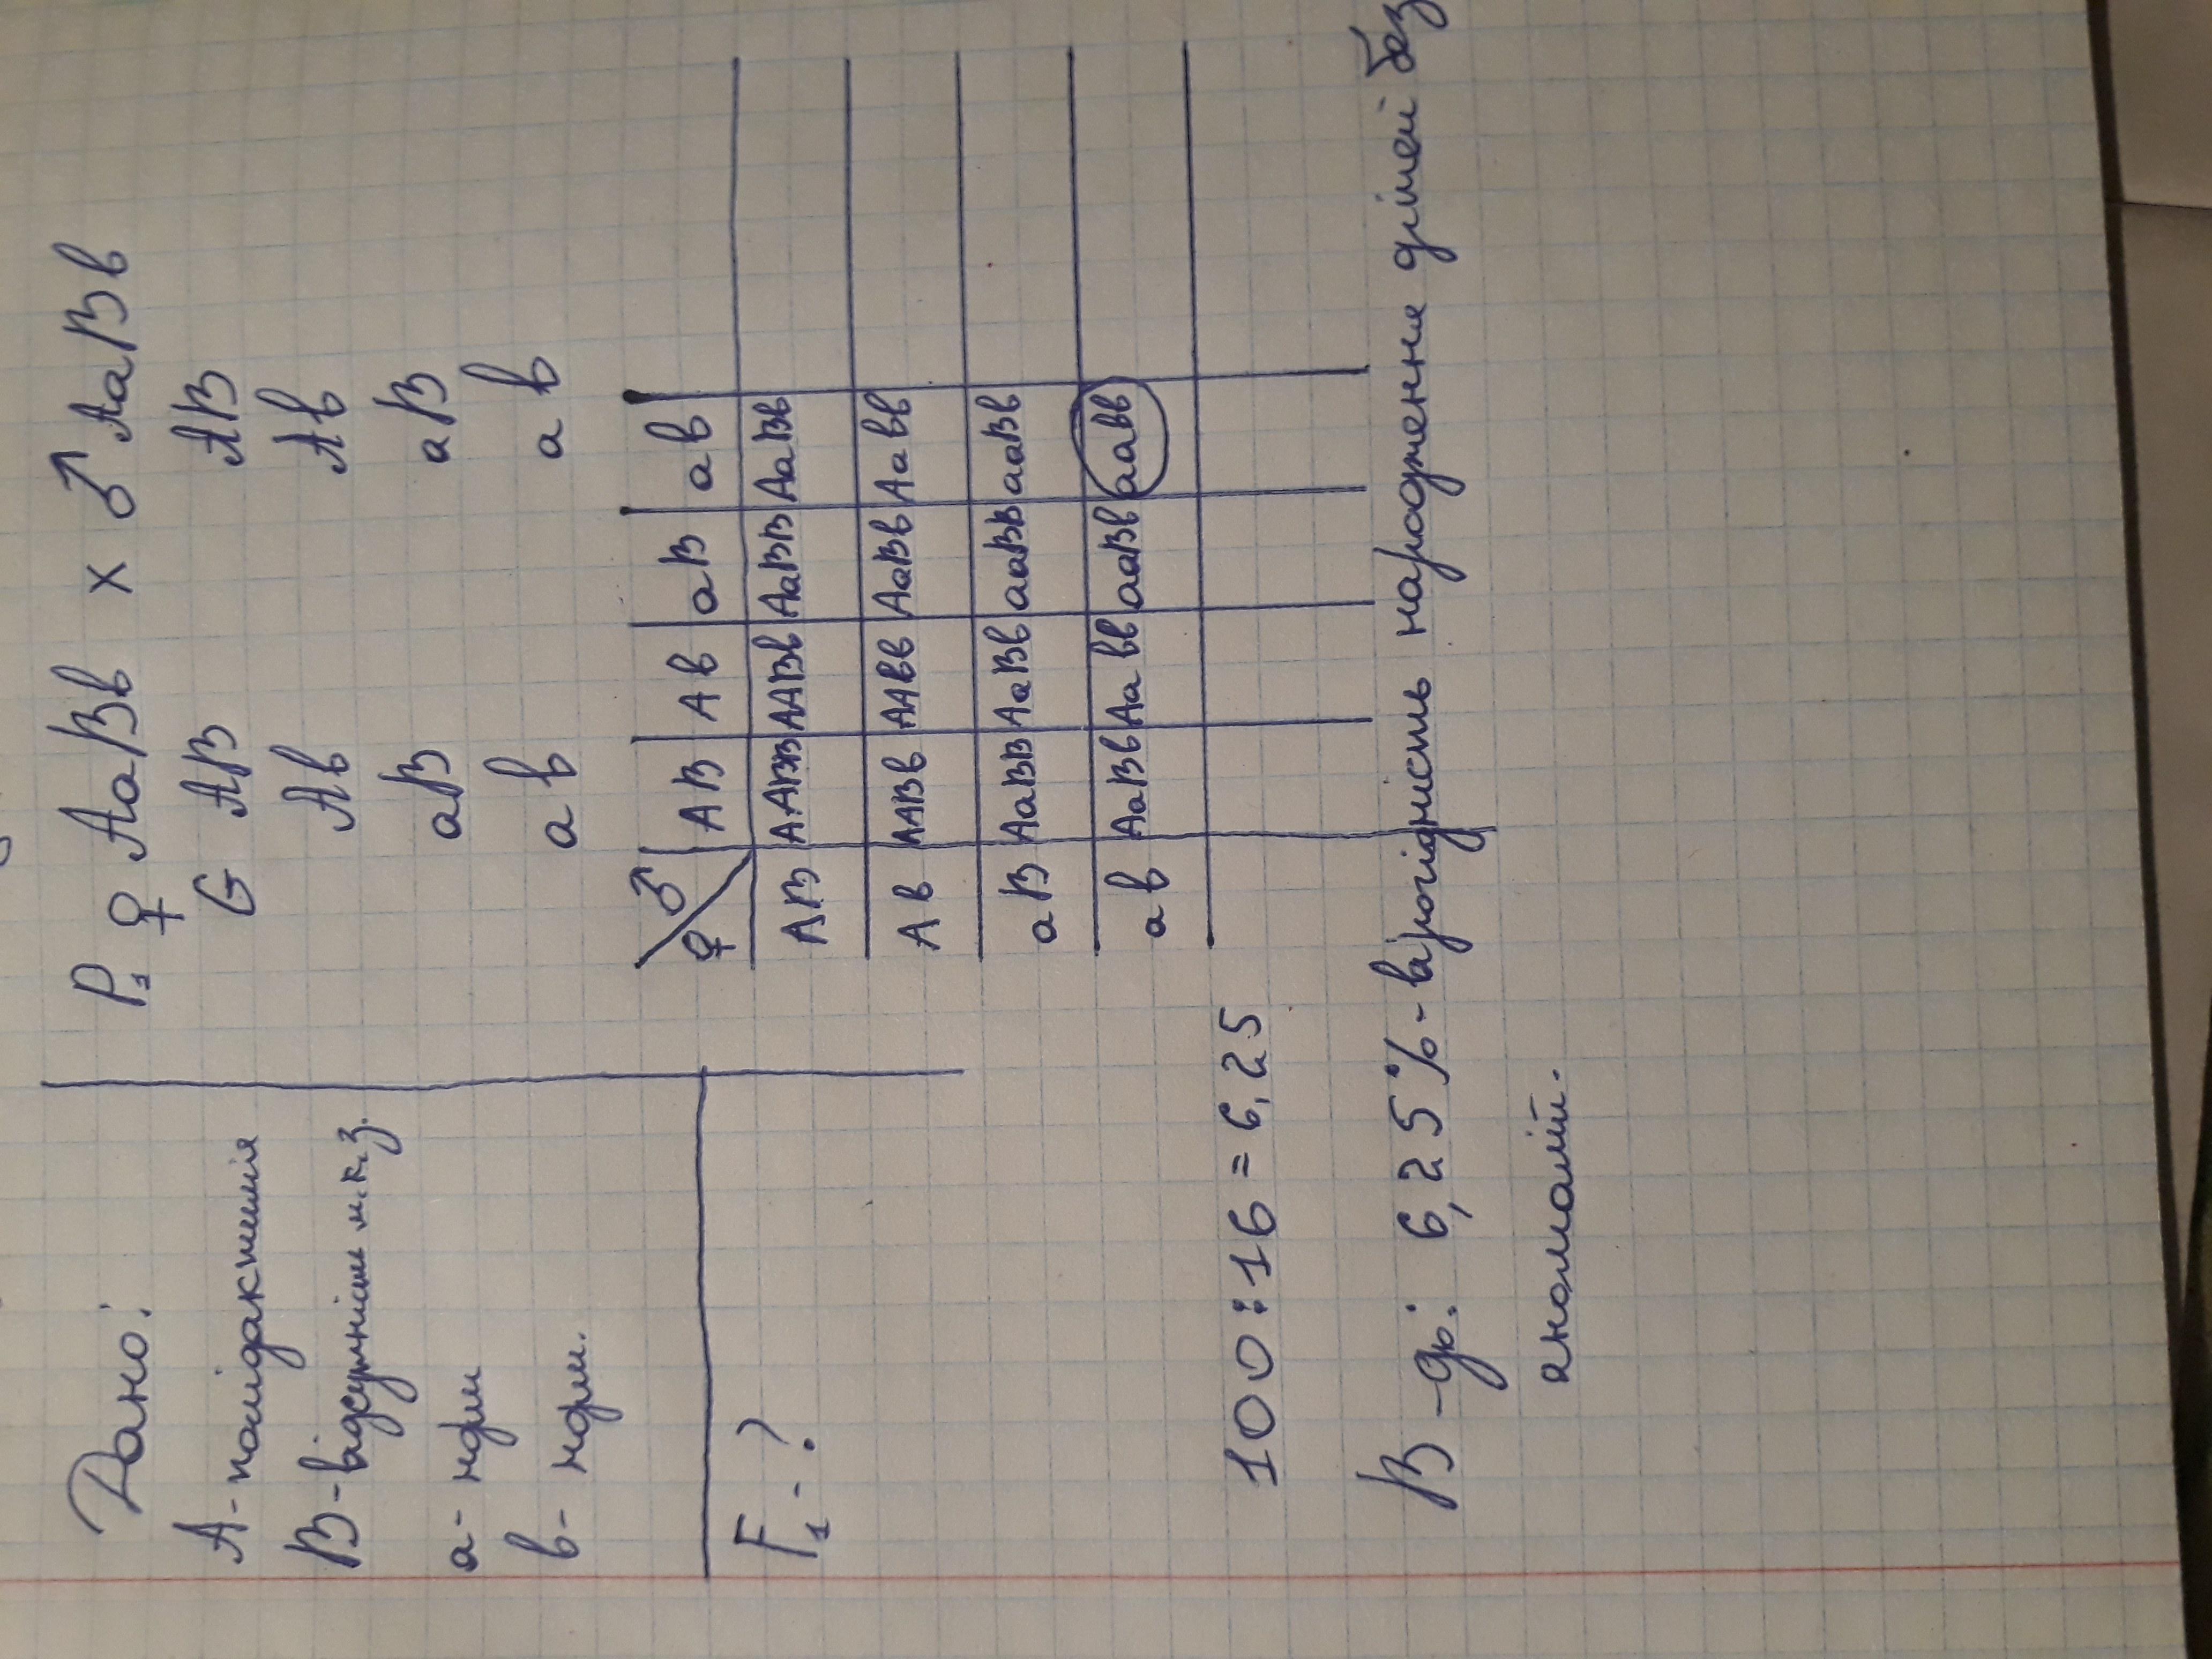 Дано:
А - полідактилія
В - відсутніст м.к.з.
а - норм
в - норм.
F₁ - ?
P₁ ♀ АаВв х ♂ АаВв
G АВ АВ
Ав Ав
аВ аВ
ав ав
♀ ♂ АВ Ав аВ ав
АВ ААВВ ААВв АаВВ АаВв
Ав ААВв ААвв АаВв Аавв
аВ АаВВ АаВв ааВВ ааВв
ав АаВв Аавв ааВв аавв
100 : 16 = 6,25
В-дь: 6,25% - вірогідність народження дітей без
аномалій.